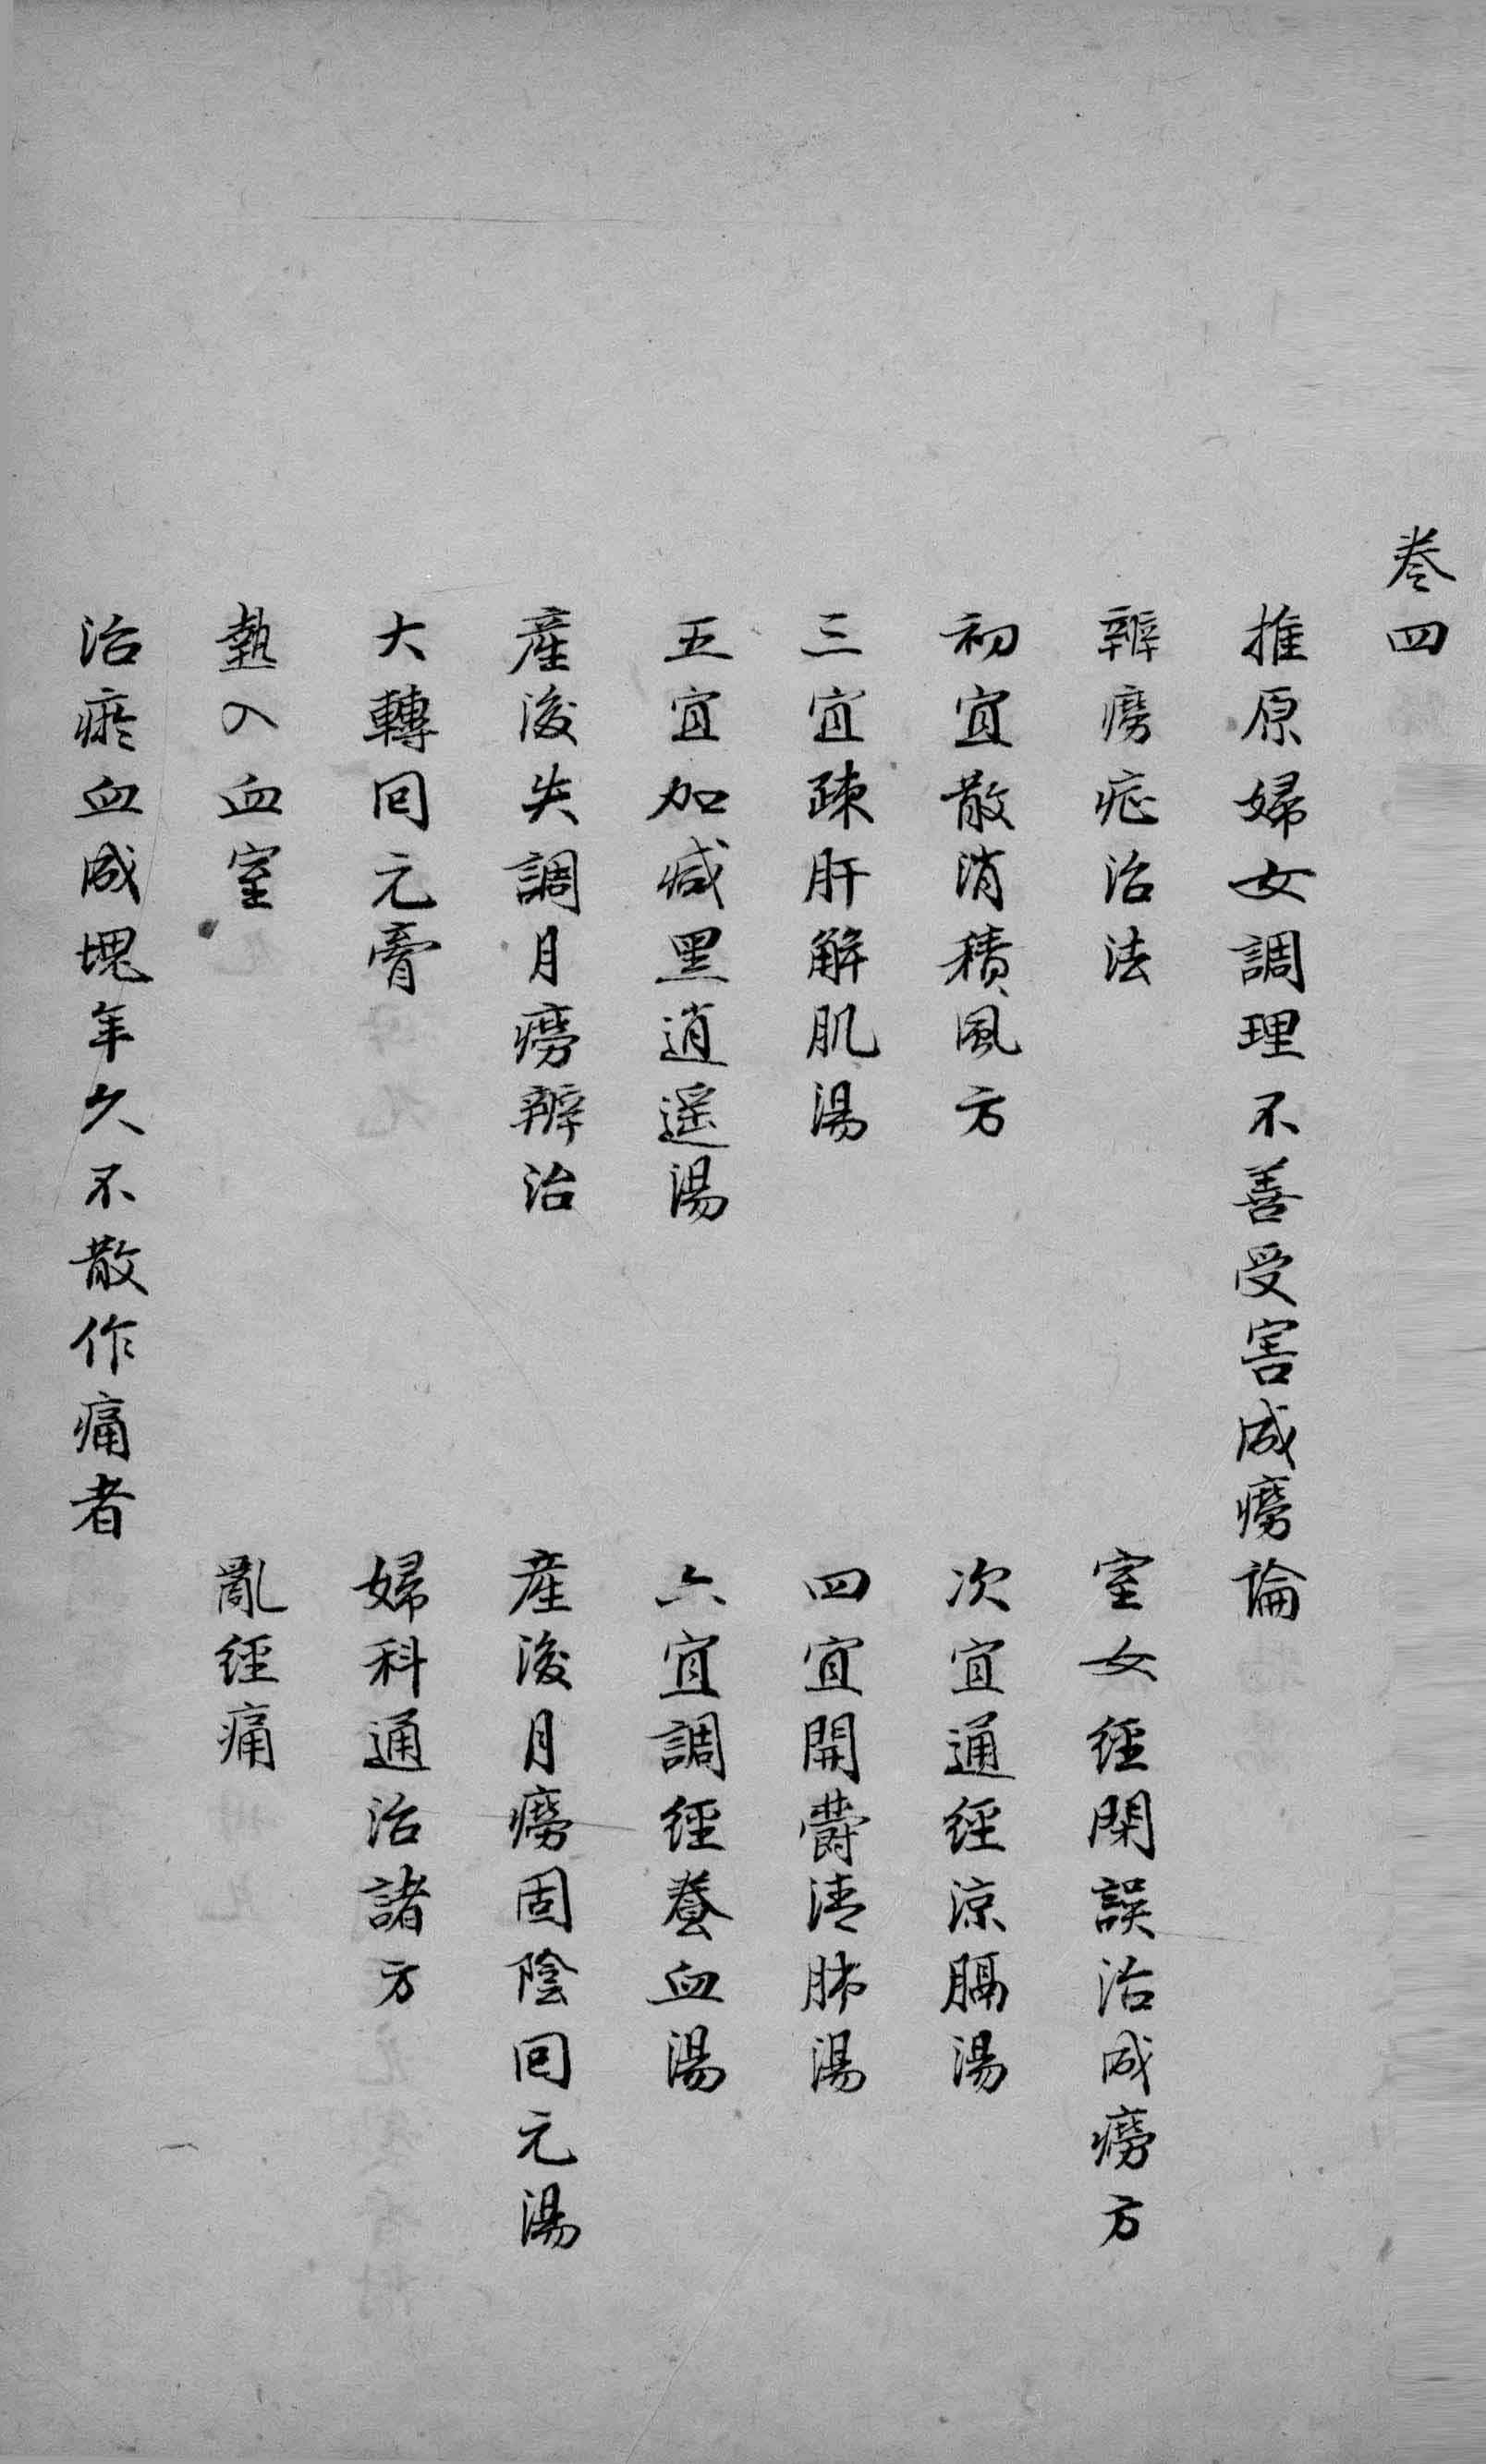 卷四
推原婦女調理不善受害成癆論
辨癆症治法　室女經閉誤治成癆方
初宜散消積風方　次宜通經涼膈湯
三宜疎肝解肌湯　四宜開欝清肺湯
五宜加减黑逍遥湯　六宜調經養血湯
產後失調月癆辨治　產後月癆固陰回元湯
大轉回元膏　婦科通治諸方
熱入血室　亂經痛
治瘀血成塊年久不散作痛者